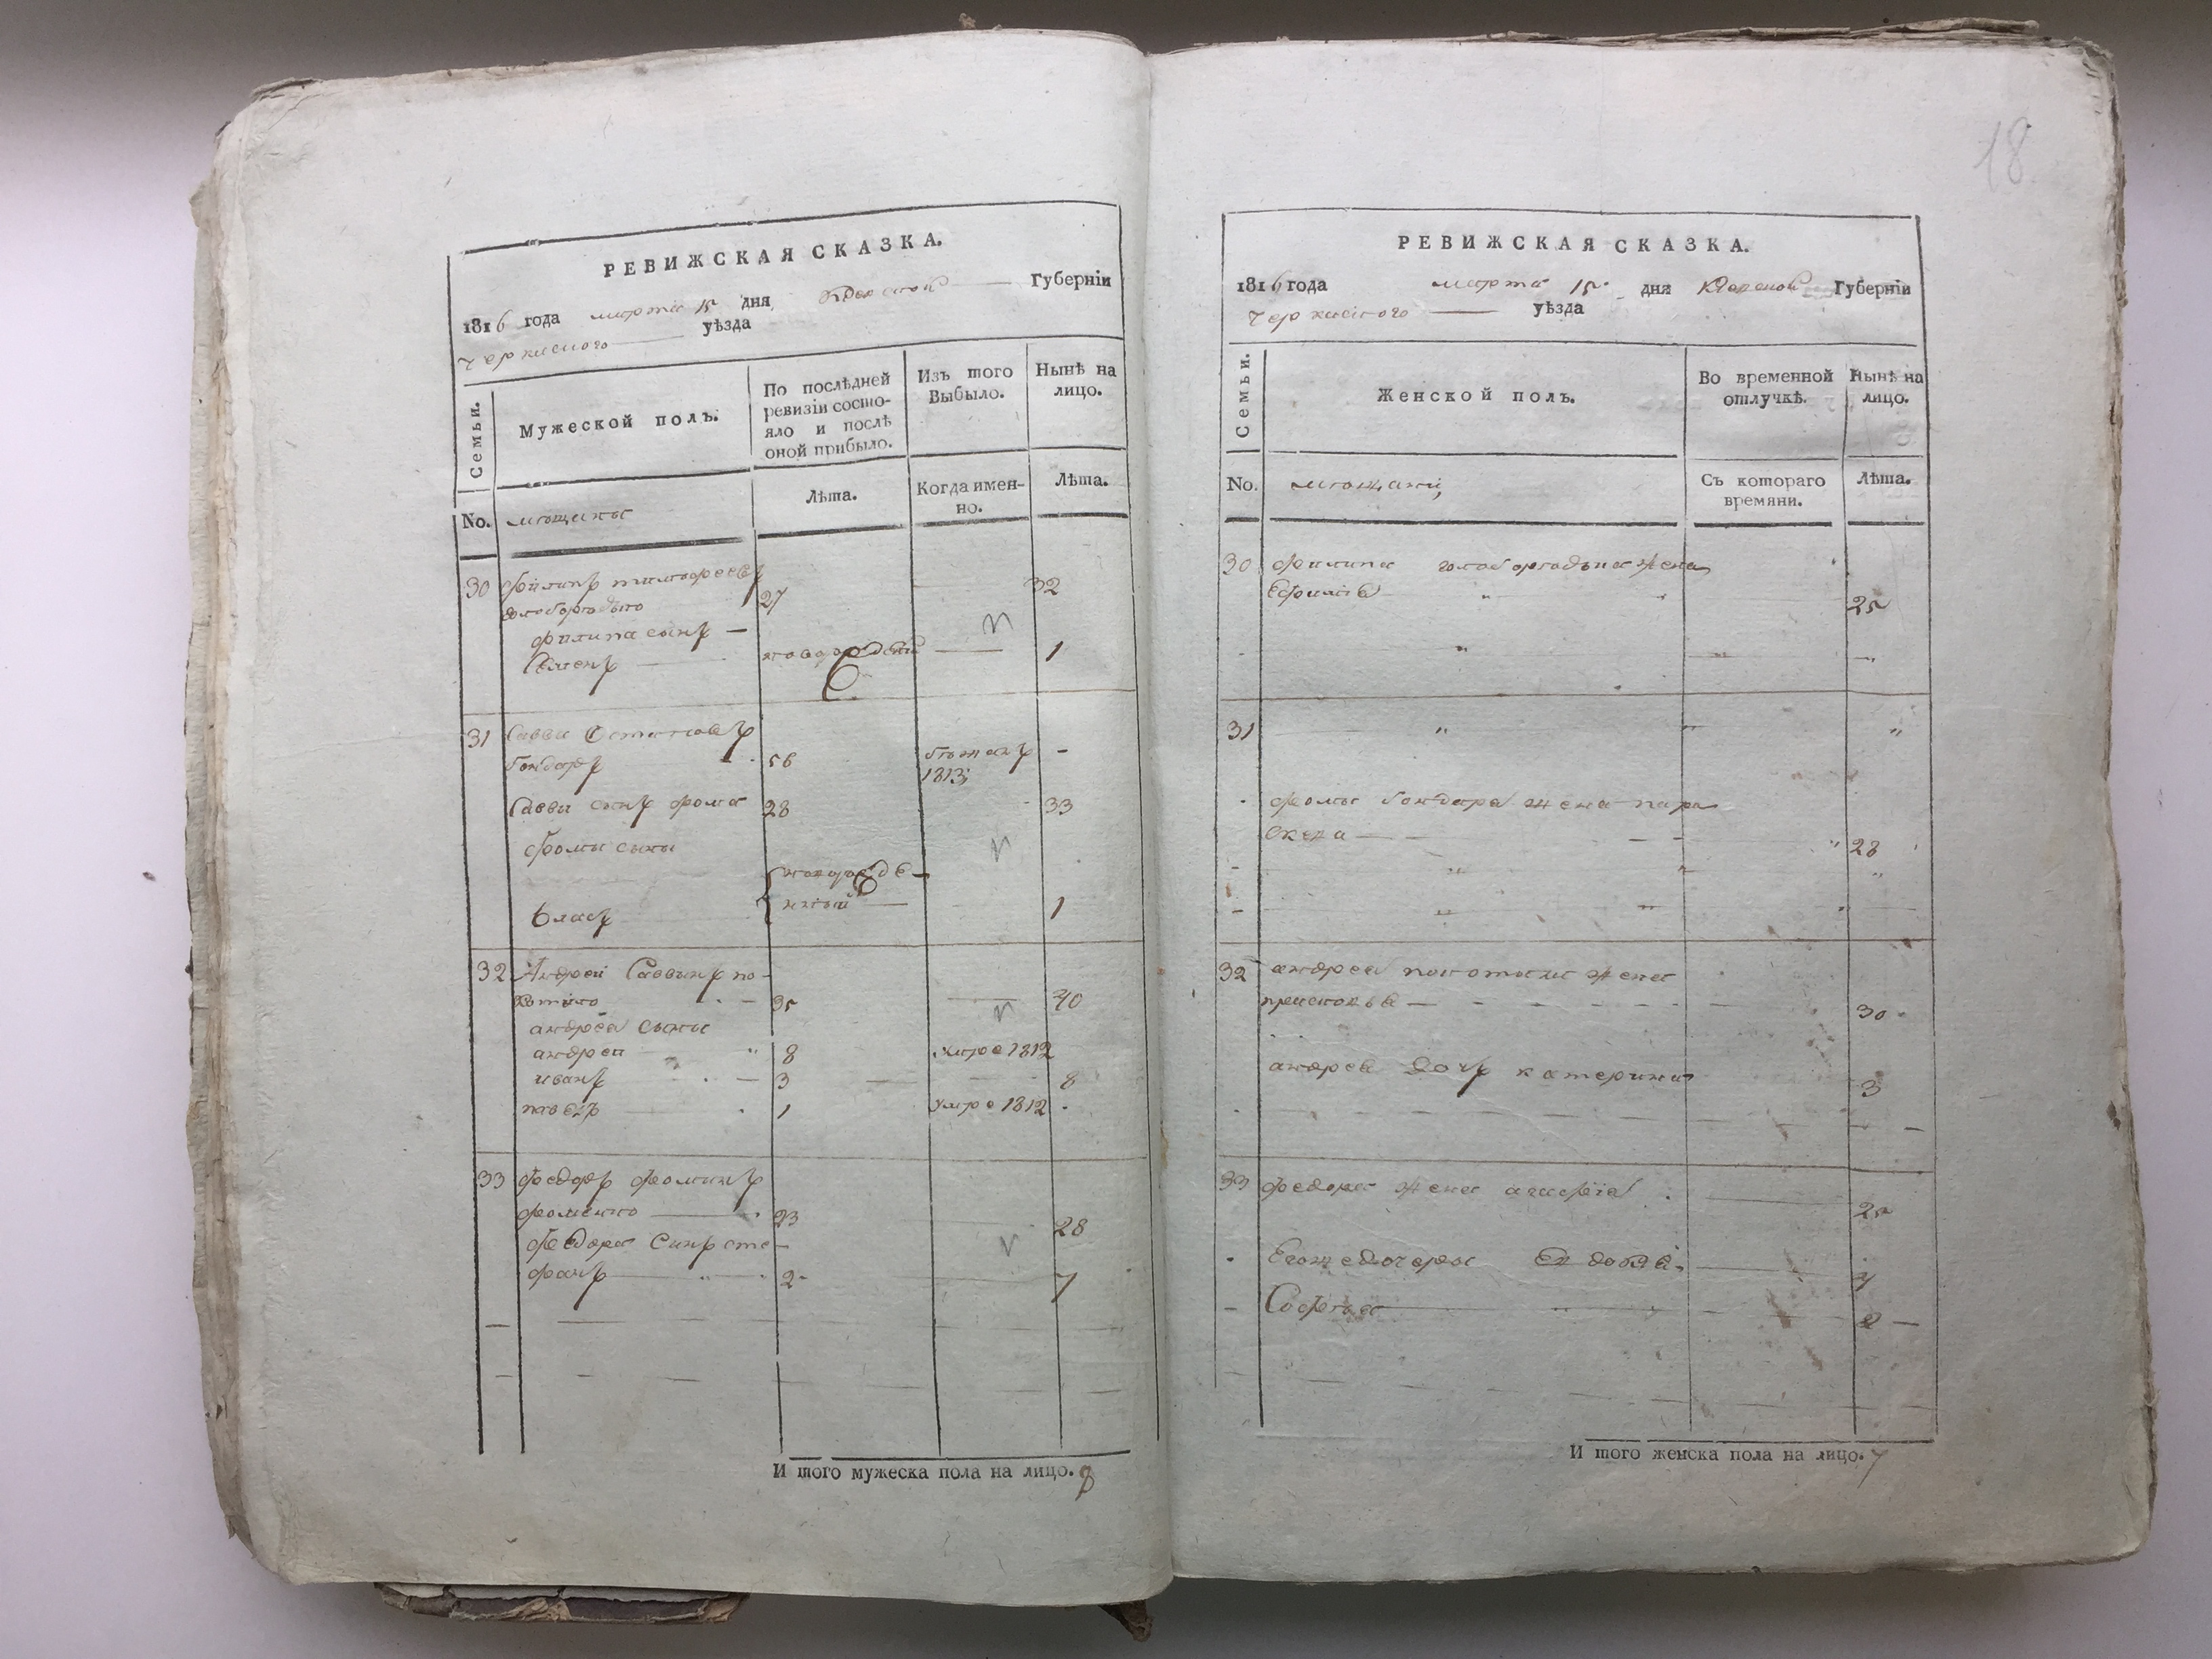 РЕВИЖСКАЯ СКАЗКА.
1816 года марта 15 дня Киевской Губерніи
Черкаского уѣзда
Семьи.
Мужеской полъ.
По послѣдней ревизіи состояло и послѣ оной прибыло.
Изъ того Выбыло.
Нынѣ на лицо.
No. мещане
Лѣта.
Когда именно.
Лѣта.
30 Филипъ тимофеевъ
27 32
Филипа сынъ —
Семенъ новорожденый 1
31 Савва Остаповъ
бондарь 56 бежалъ 1813; -
Саввы сынъ фома 28 33
фомы сыны
новорожденный
Власъ 1
32 Андрей Саввинъ по-
хотило 35 40
андрея сыны
андрей " 8 умре 1812
иванъ 3 8
павелъ 1 умре 1812
33 федоръ фоминъ
фоменко 23 28
федора Синъ сте-
фанъ 2 7
И того мужеска пола на лицо. 8
18
РЕВИЖСКАЯ СКАЗКА.
1816 года марта 15 дня Киевской Губерніи
Черкаского уѣзда
Семьи.
Женской полъ.
Во временной отлучкѣ.
Нынѣ на лицо.
No.
Съ котораго времяни.
Лѣта.
30 филипа жена
Ефимія 25
31
фомы бондаря жена пара
скева 28
32 андрея жена
присковья 30
андрея дочъ катерина 3
33 федора жена агафія 25
Егожедочеры 4
Софья 2
И того женска пола на лицо. 7